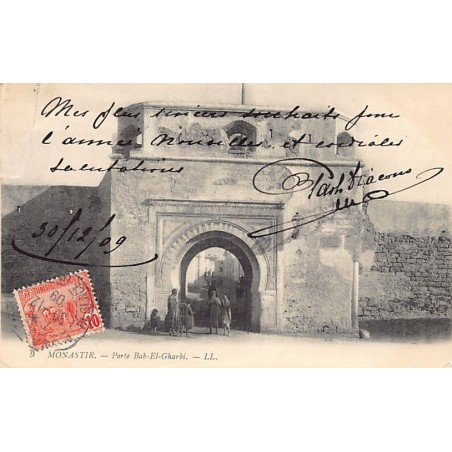 Mes plus sincères souhaits pour
l'année Nouvelle et cordiales
salutations
30/12/09
10
9 MONASTIR. — Porte Bab-El-Gharbi. — LL.